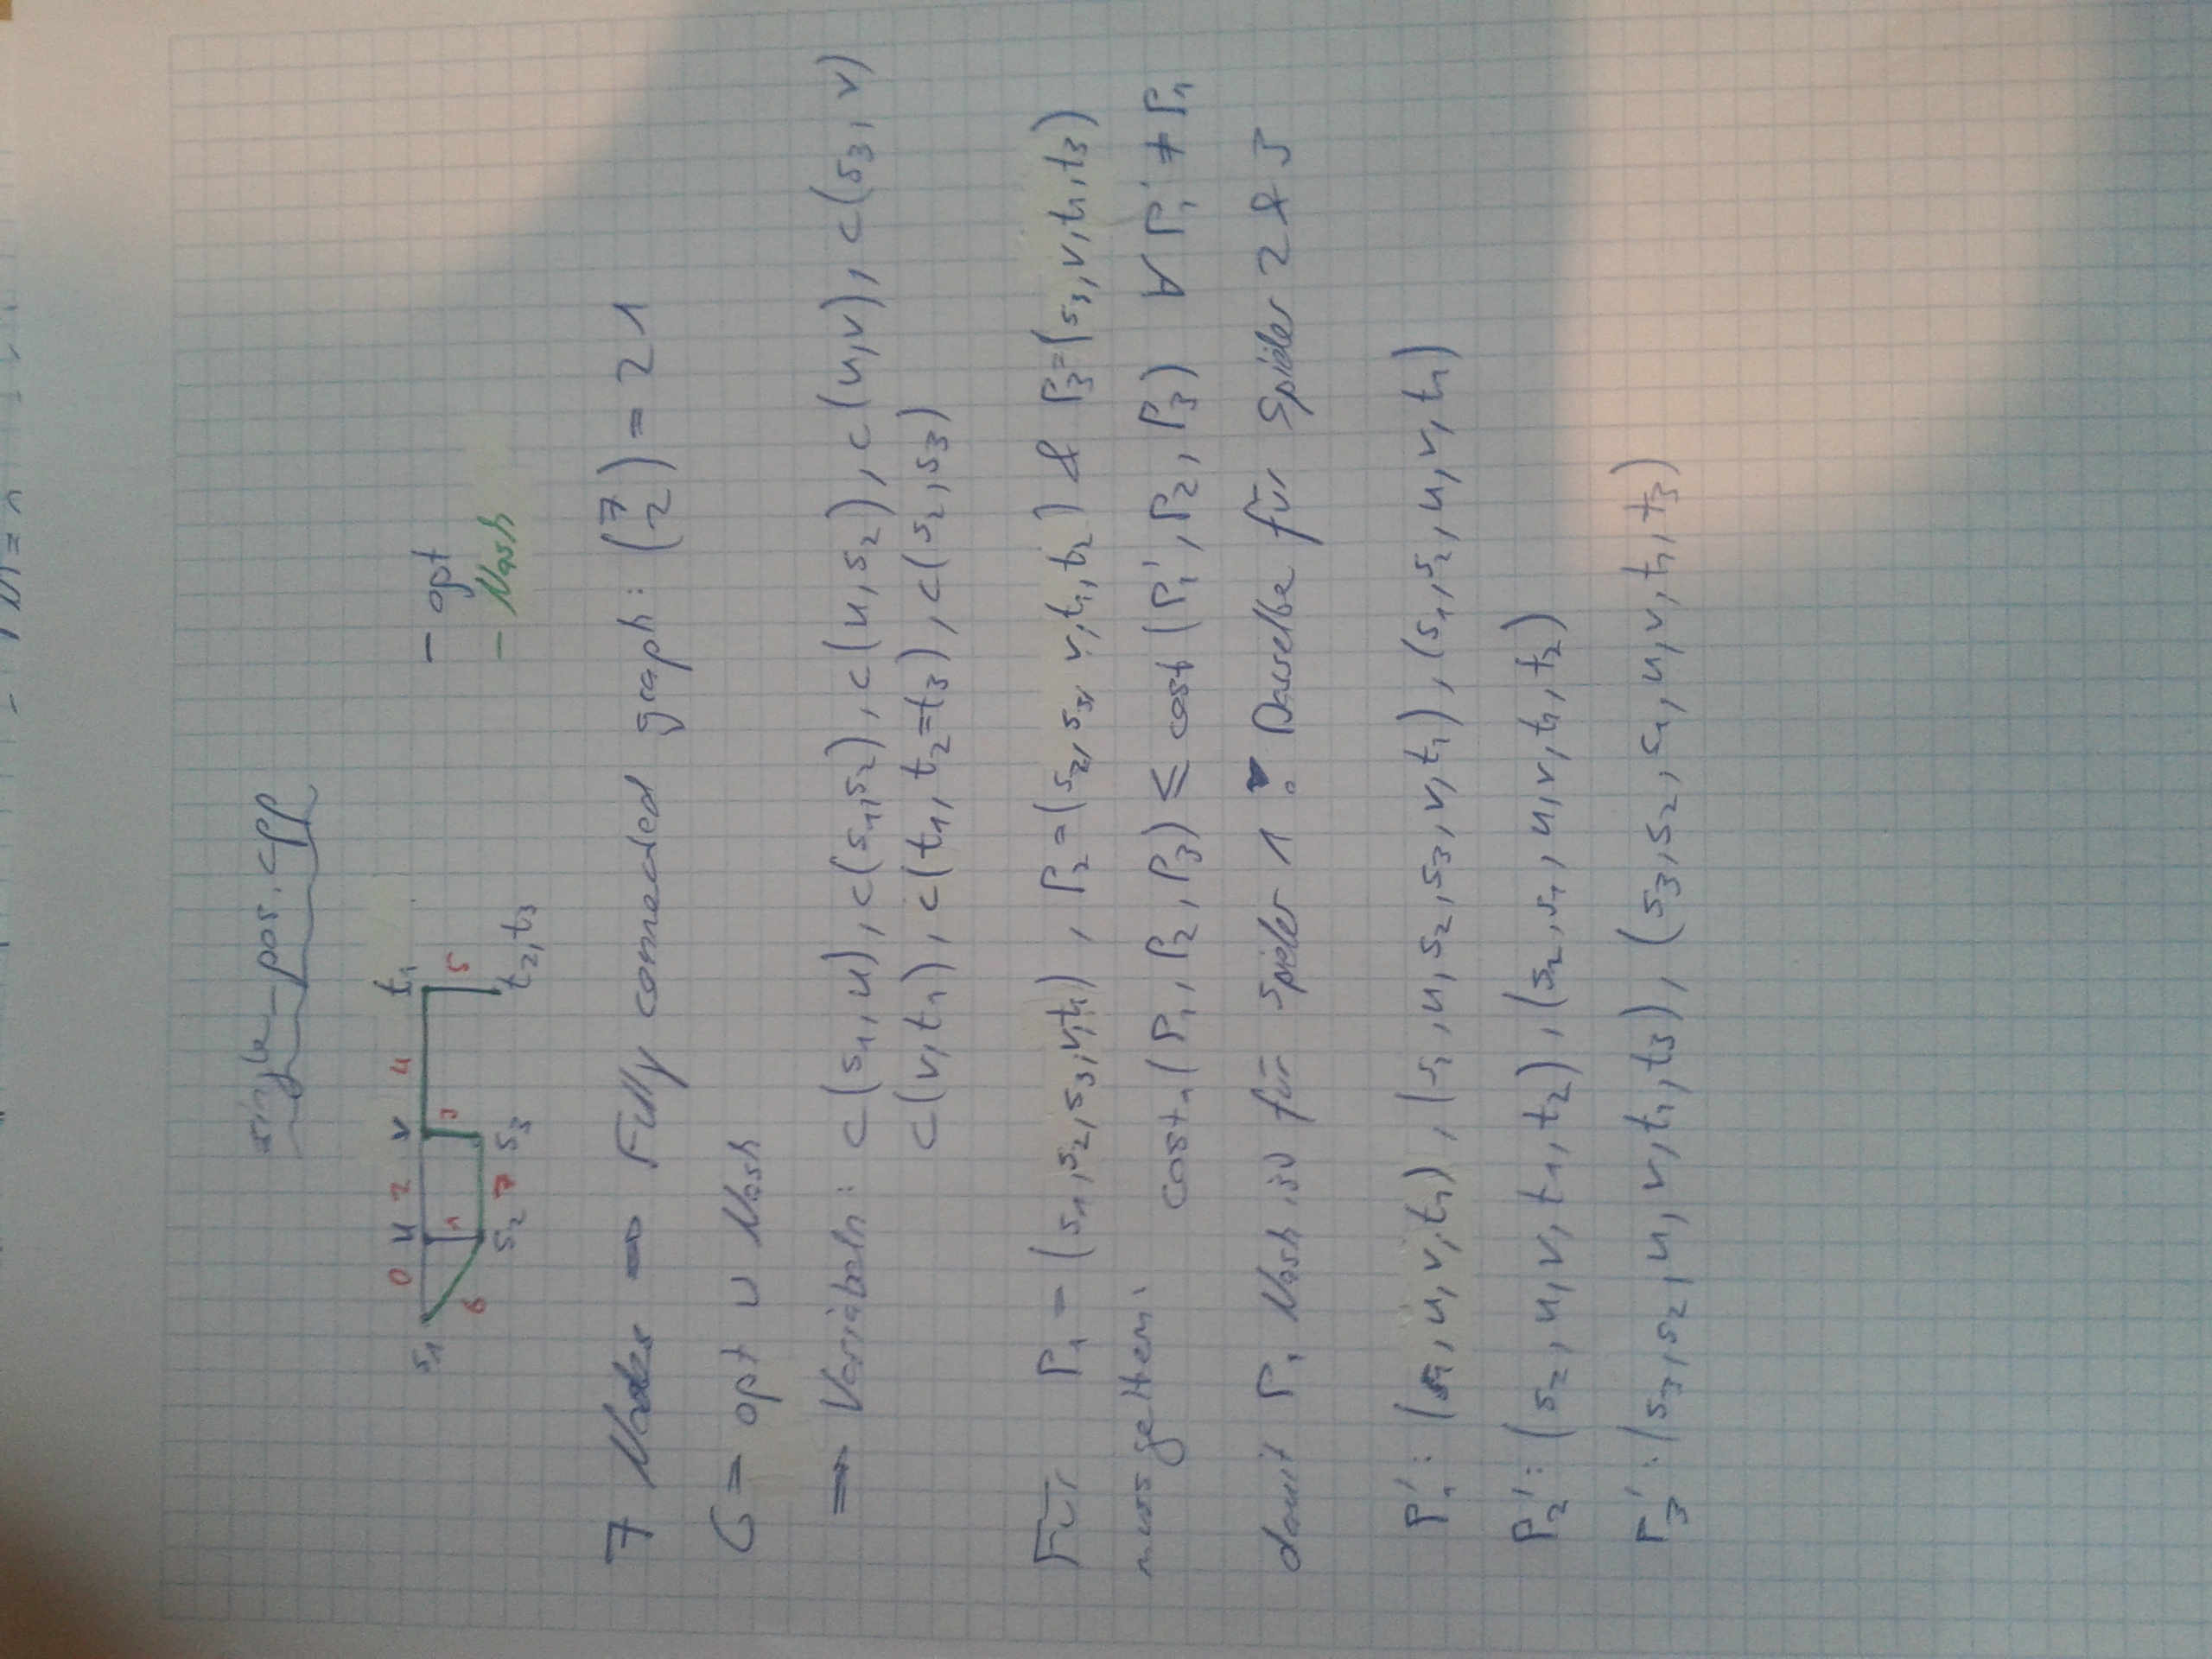 single_pos.cpp
0 u 2 v 4 t₁
s₁ 1 3 5
6
s₂ 7 s₃ t₂,t₃
- opt
- Nash
7 Nodes ⇒ Fully connected graph: (7 2) = 21
G = opt ∪ Nash
⇒ Variabeln: c(s₁,u), c(s₁,s₂), c(u,s₂), c(u,v), c(s₃,v)
c(v,t₁), c(t₁, t₂=t₃), c(s₂,s₃)
Für P₁ = (s₁,s₂,s₃,v,t₁), P₂=(s₂,s₃,v,t₁,t₂) & P₃=(s₃,v,t₁,t₃)
muss gelten:
cost₁(P₁,P₂,P₃) ≤ cost(P₁',P₂,P₃) ∀ P₁' ≠ P₁
damit P₁ Nash ist für Spieler 1. Dasselbe für Spieler 2 & 3
P₁': (s₁,u,v,t₁), (s₁,u,s₂,s₃,v,t₁), (s₁,s₂,u,v,t₁)
P₂': (s₂,u,v,t₁,t₂), (s₂,s₁,u,v,t₁,t₂)
P₃': (s₃,s₂,u,v,t₁,t₃), (s₃,s₂,s₁,u,v,t₁,t₃)